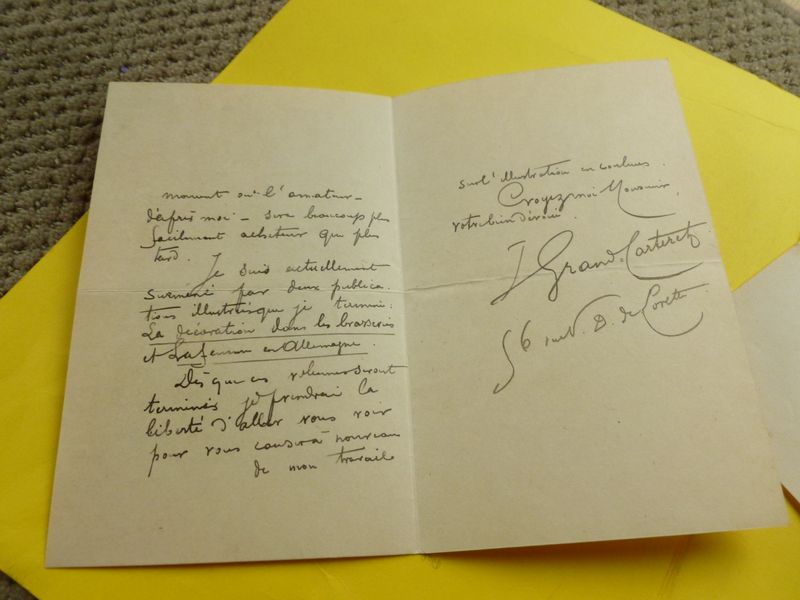 moment où l'amateur -
d'après moi - sera beaucoup plus
facilement acheteur que plus
tard.
Je suis actuellement
surmené par deux publica-
tions illustrées que je termine.
La décoration dans les brasseries
et La femme en Allemagne.
Dès que ces volumes seront
terminés je prendrai la
liberté d'aller vous voir
pour vous causer à nouveau
de mon travail
sur l'illustration en couleurs.
Croyez moi Monsieur,
votre bien dévoué.
J Grand-Carteret
56 rue N. D. de Lorette